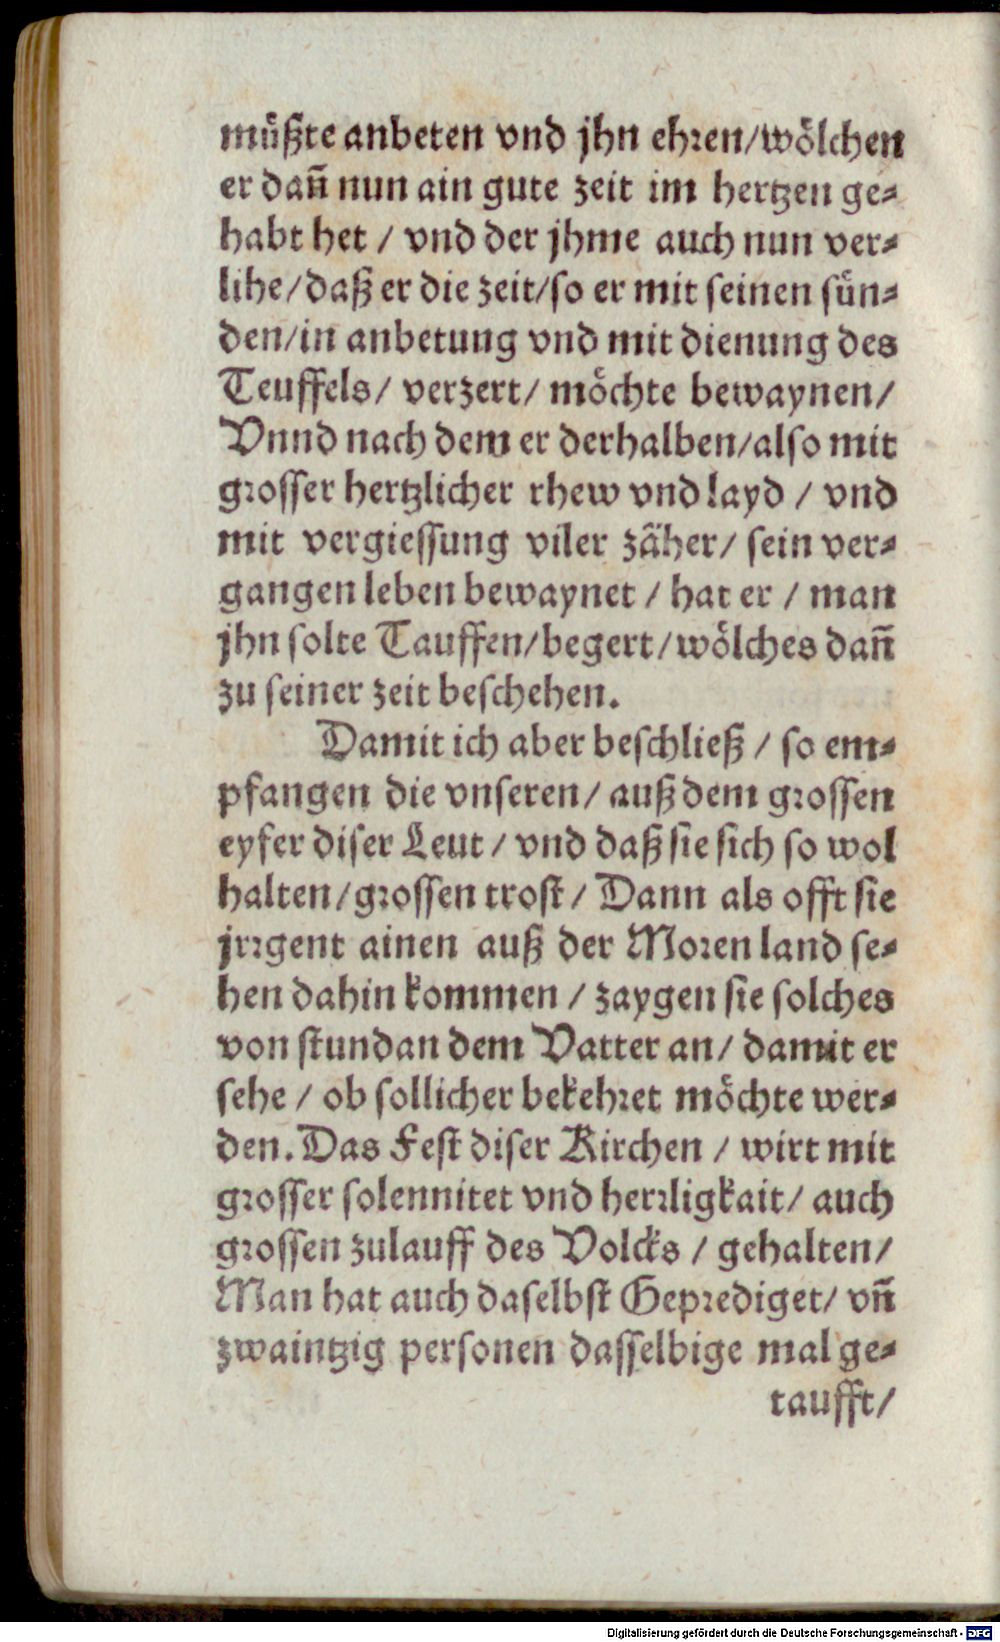 müßte anbeten vnd jhn ehren/wölchen
er dañ nun ain gute zeit im hertzen ge⸗
habt het / vnd der jhme auch nun ver⸗
lihe/daß er die zeit/so er mit seinen sün⸗
den/in anbetung vnd mit dienung des
Teuffels/ verzert/ möchte bewaynen/
Vnnd nach dem er derhalben/also mit
grosser hertzlicher rhew vnd layd / vnd
mit vergiessung viler zäher/ sein ver⸗
gangen leben bewaynet / hat er / man
jhn solte Tauffen/begert/wölches dañ
zu seiner zeit beschehen.
Damit ich aber beschließ / so em⸗
pfangen die vnseren/ auß dem grossen
eyfer diser Leut / vnd daß sie sich so wol
halten/grossen trost/ Dann als offt sie
jrrgent ainen auß der Moren land se⸗
hen dahin kommen / zaygen sie solches
von stundan dem Vatter an/ damit er
sehe / ob sollicher bekehret möchte wer⸗
den. Das Fest diser Kirchen / wirt mit
grosser solennitet vnd herrligkait/ auch
grossen zulauff des Volcks / gehalten/
Man hat auch daselbst Geprediget/ vñ
zwaintzig personen dasselbige mal ge⸗
taufft/
Digitalisierung gefördert durch die Deutsche Forschungsgemeinschaft - DFG